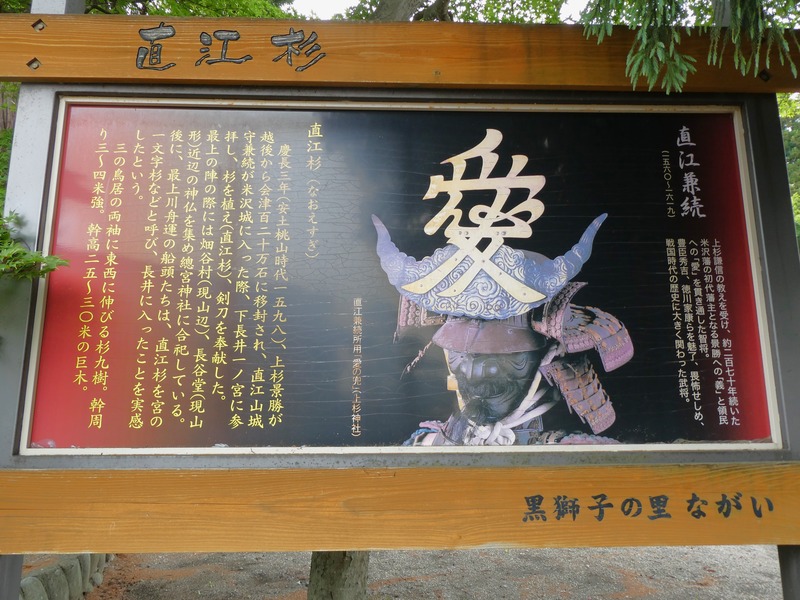 直江杉
直江兼続
(一五六〇〜一六一九)
上杉謙信の教えを受け、約二百七十年続いた
米沢藩の初代藩主となる景勝への「義」と領民
への「愛」を貫き通した智将。
豊臣秀吉、徳川家康らを魅了、畏怖せしめ、
戦国時代の歴史に大きく関わった武将。
愛
直江兼続所用「愛の兜」(上杉神社)
直江杉(なおえすぎ)
慶長三年(安土桃山時代一五九八)、上杉景勝が
越後から会津百二十万石に移封され、直江山城
守兼続が米沢城に入った際、下長井一ノ宮に参
拝し、杉を植え(直江杉)、剣刀を奉献した。
最上の陣の際には畑谷村(現山辺)、長谷堂(現山
形)近辺の神仏を集め總宮神社に合祀している。
後に、最上川舟運の船頭たちは、直江杉を宮の
一文字杉などと呼び、長井に入ったことを実感
したという。
三の鳥居の両袖に東西に伸びる杉九樹。幹周
り三〜四米強。幹高二五〜三〇米の巨木。
黒獅子の里 ながい